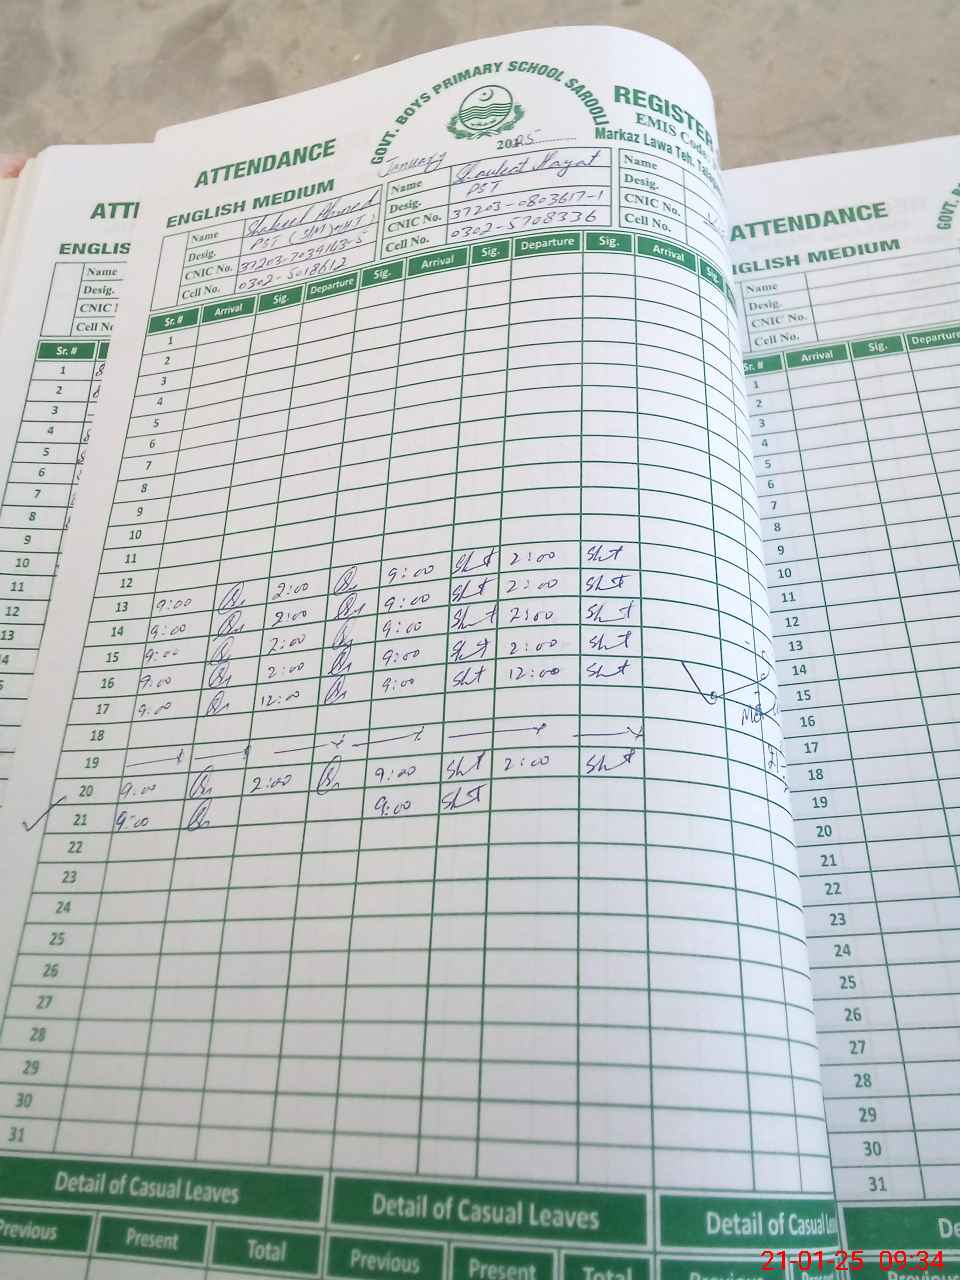 GOVT. BOYS PRIMARY SCHOOL SAROOLI
ATTENDANCE
REGISTER
January 2025
EMIS Code
ENGLISH MEDIUM
Markaz Lawa Teh.
Name Shakeel Ahmed
Desig. PST
CNIC No. 37203-7034163-5
Cell No. 0302-5018612
Name Shaukat Hayat
Desig. PST
CNIC No. 37203-0803617-1
Cell No. 0302-5708336
Name
Desig.
CNIC No.
Cell No.
Sr. # Arrival Sig. Departure Sig. Arrival Sig. Departure Sig. Arrival Sig.
1
2
3
4
5
6
7
8
9
10
11
12
13 9:00 2:00 9:00 Sht 2:00 Sht
14 9:00 2:00 9:00 Sht 2:00 Sht
15 9:00 2:00 9:00 Sht 2:00 Sht
16 9:00 2:00 9:00 Sht 2:00 Sht
17 9:00 12:00 9:00 Sht 12:00 Sht
18
19
20 9:00 2:00 9:00 Sht 2:00 Sht
21 9:00 9:00 Sht
22
23
24
25
26
27
28
29
30
31
Detail of Casual Leaves Detail of Casual Leaves Detail of Casual
Previous Present Total Previous Present Total Previous
ATT
ENGLIS
Name
Desig.
CNIC
Cell
Sr. #
1
2
3
4
5
6
7
8
9
10
11
12
13
ATTENDANCE
GOVT.
ENGLISH MEDIUM
Name
Desig.
CNIC No.
Cell No.
Sr. # Arrival Sig. Departure
1
2
3
4
5
6
7
8
9
10
11
12
13
14
15
16
17
18
19
20
21
22
23
24
25
26
27
28
29
30
31
De
21-01-25 09:34